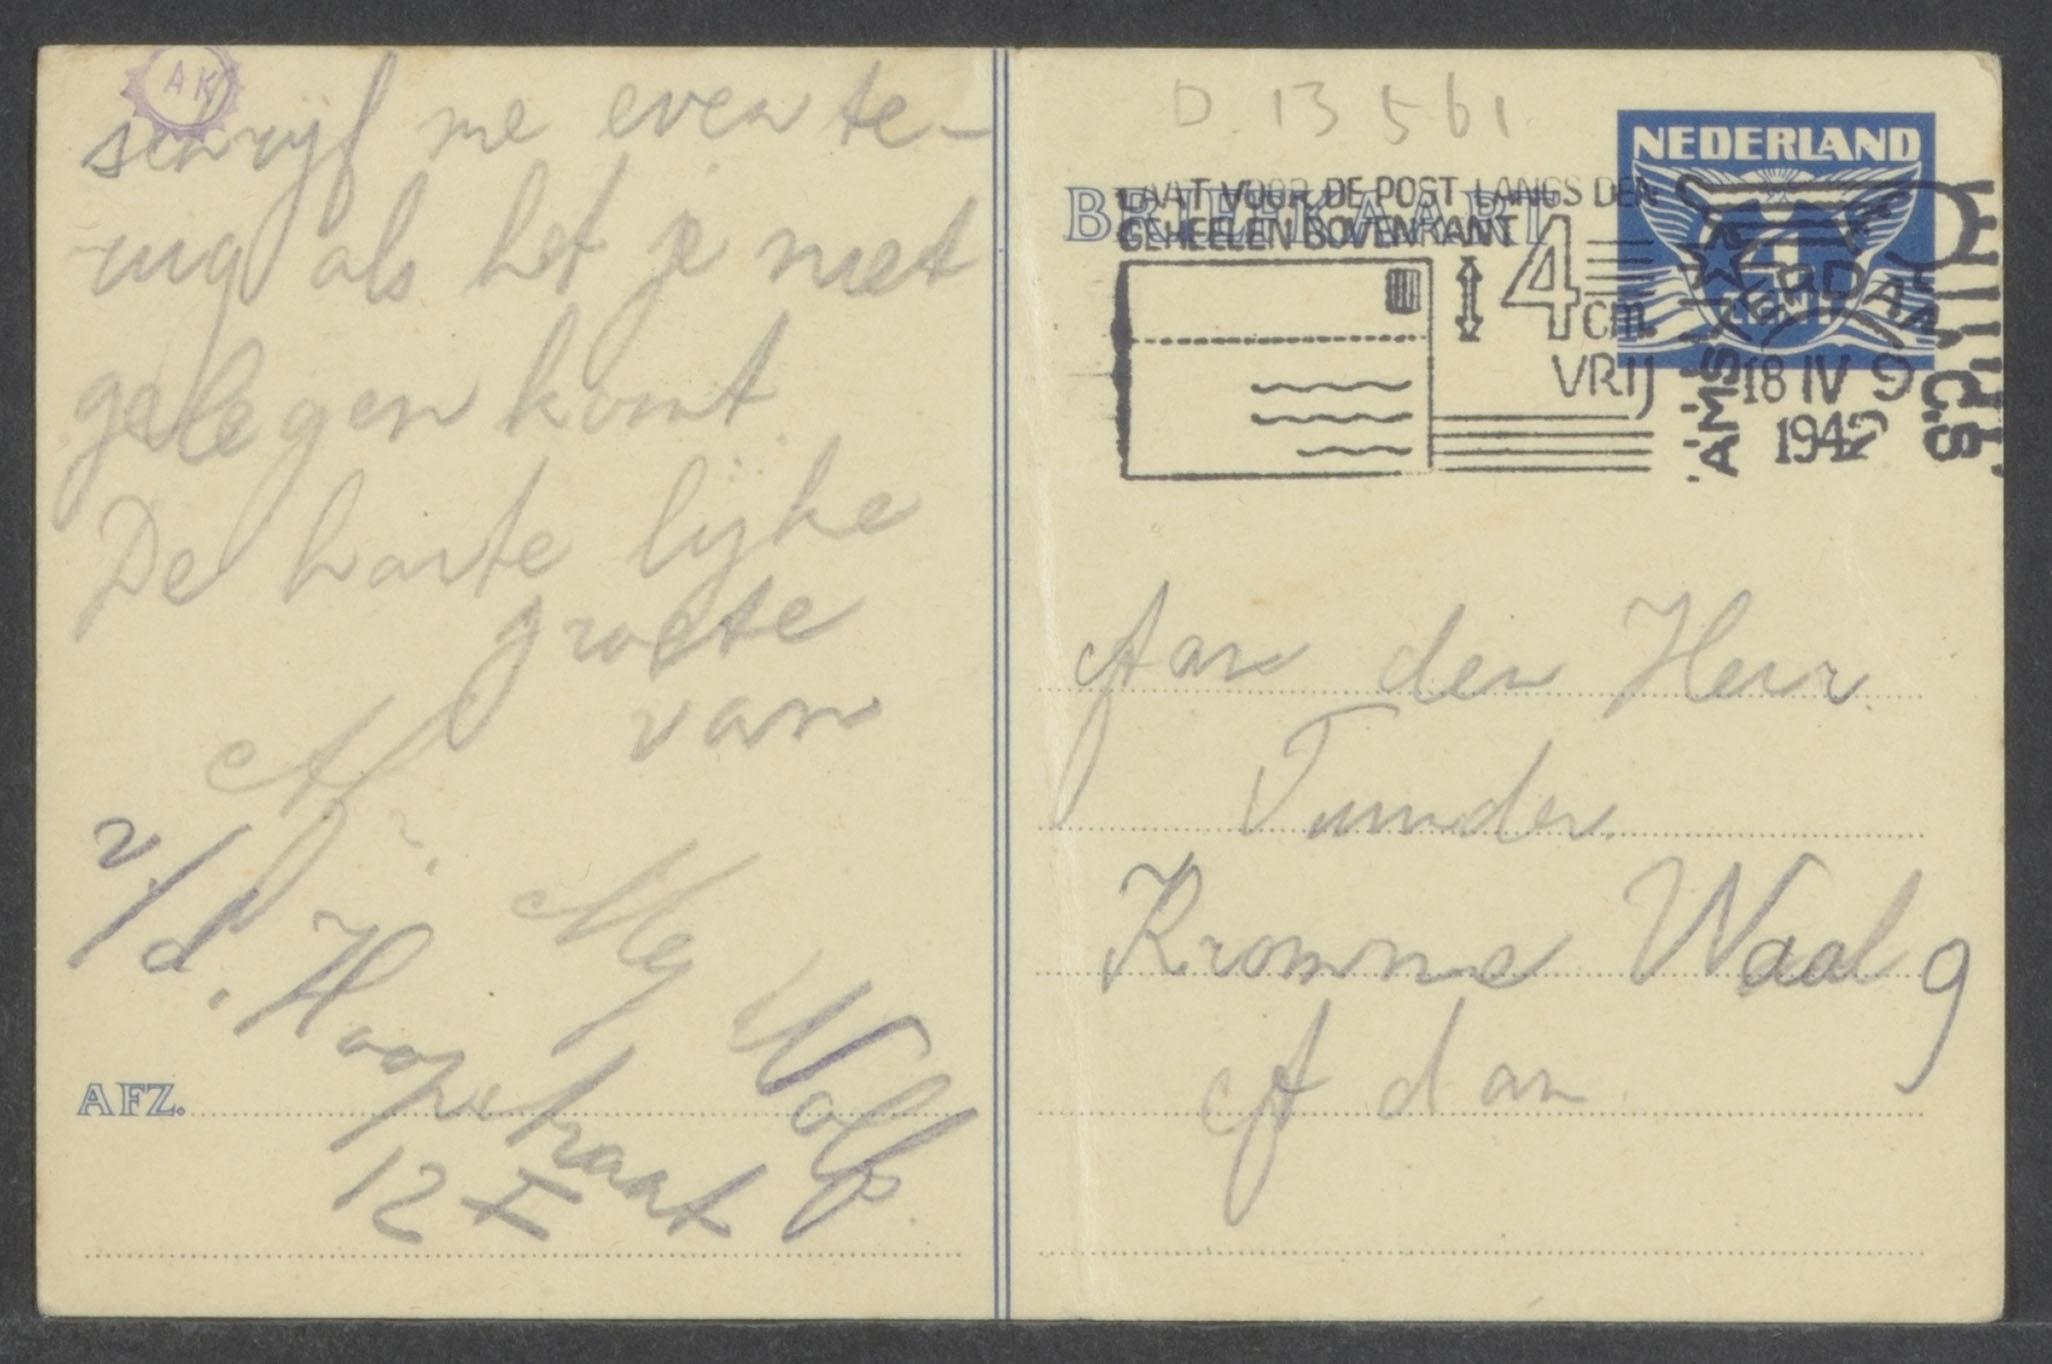 AK
schrijf me even te-
rug als het je niet
gelegen komt.
De harte lijke
groete
van
Mej Wolff
v/d. Hoopstraat
12 I
AFZ.
D 13561
NEDERLAND
BRIEFKAART
LAAT VOOR DE POST LANGS DEN
GEHEELEN BOVENRANT
4
cm.
VRIJ
AMSTERDAM C.S
18 IV 9
1942
Aan den Heer
Kromme Waal 9
A dam